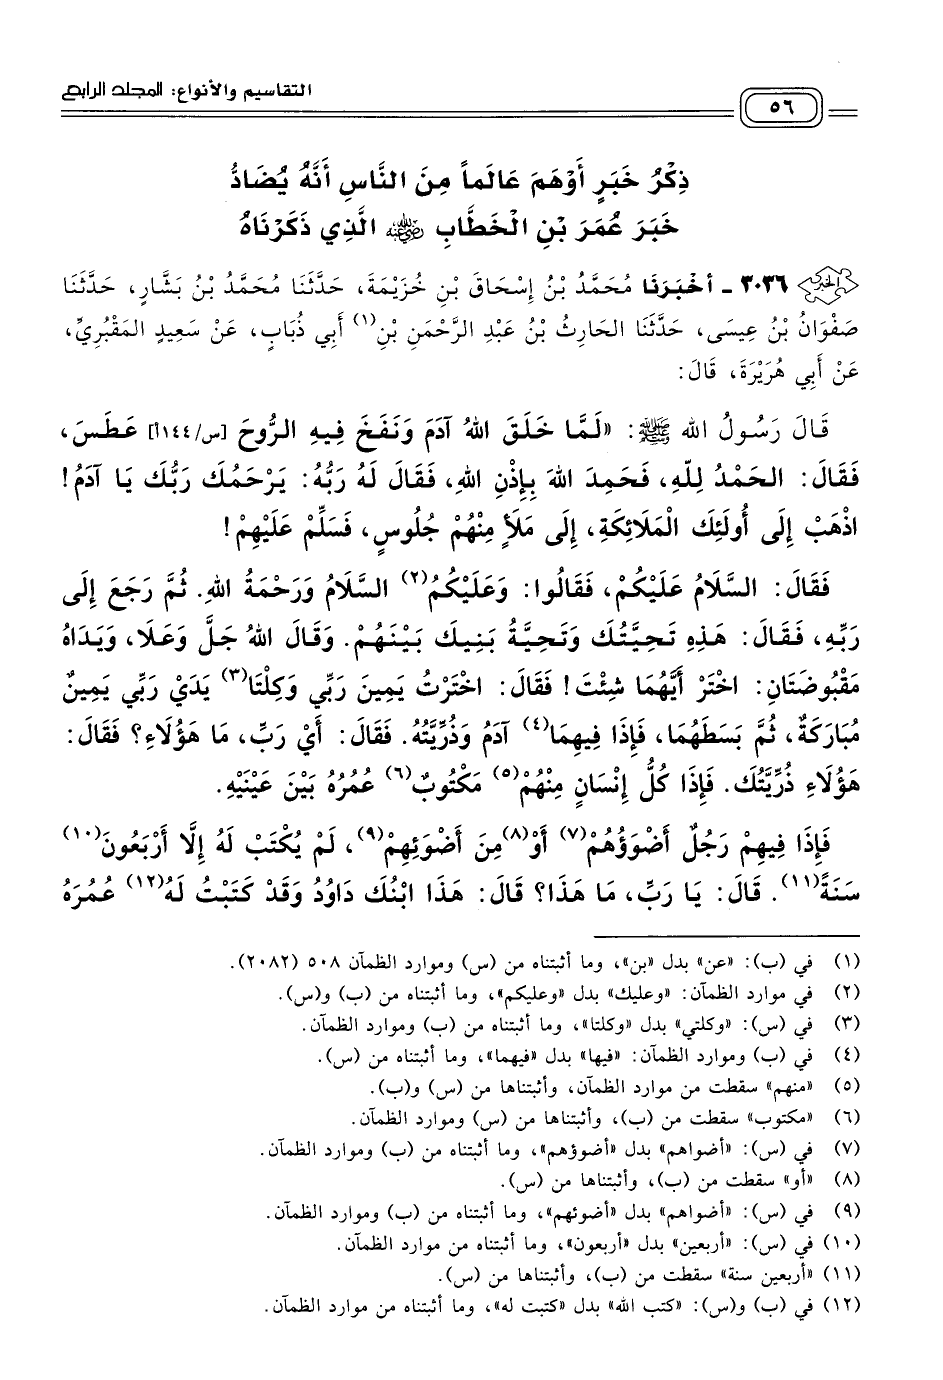 التقاسيم والأنواع: المجلد الرابع
٥٦
ذِكْرُ خَبَرٍ أَوْهَمَ عَالَماً مِنَ النَّاسِ أَنَّهُ يُضَادُّ
خَبَرَ عُمَرَ بْنِ الْخَطَّابِ رضي الله عنه الَّذِي ذَكَرْنَاهُ
٣٠٣٦ - أخْبَرَنَا مُحَمَّدُ بْنُ إِسْحَاقَ بْنِ خُزَيْمَةَ، حَدَّثَنَا مُحَمَّدُ بْنُ بَشَّارٍ، حَدَّثَنَا
صَفْوَانُ بْنُ عِيسَى، حَدَّثَنَا الحَارِثُ بْنُ عَبْدِ الرَّحْمَنِ بْنِ(١) أَبِي ذُبَابٍ، عَنْ سَعِيدٍ المَقْبُرِيِّ،
عَنْ أَبِي هُرَيْرَةَ، قَالَ:
قَالَ رَسُولُ الله ﷺ: «لَمَّا خَلَقَ اللهُ آدَمَ وَنَفَخَ فِيهِ الرُّوحَ [س/١٤٤أ] عَطَسَ،
فَقَالَ: الحَمْدُ لِلّهِ، فَحَمِدَ اللهَ بِإِذْنِ اللهِ، فَقَالَ لَهُ رَبُّهُ: يَرْحَمُكَ رَبُّكَ يَا آدَمُ!
اذْهَبْ إِلَى أُولَئِكَ الْمَلَائِكَةِ، إِلَى مَلَأٍ مِنْهُمْ جُلُوسٍ، فَسَلِّمْ عَلَيْهِمْ!
فَقَالَ: السَّلَامُ عَلَيْكُمْ، فَقَالُوا: وَعَلَيْكُمُ(٢) السَّلَامُ وَرَحْمَةُ اللهِ. ثُمَّ رَجَعَ إِلَى
رَبِّهِ، فَقَالَ: هَذِهِ تَحِيَّتُكَ وَتَحِيَّةُ بَنِيكَ بَيْنَهُمْ. وَقَالَ اللهُ جَلَّ وَعَلَا، وَيَدَاهُ
مَقْبُوضَتَانِ: اخْتَرْ أَيَّهُمَا شِئْتَ! فَقَالَ: اخْتَرْتُ يَمِينَ رَبِّي وَكِلْتَا(٣) يَدَيْ رَبِّي يَمِينٌ
مُبَارَكَةٌ، ثُمَّ بَسَطَهُمَا، فَإِذَا فِيهِمَا(٤) آدَمُ وَذُرِّيَّتُهُ. فَقَالَ: أَيْ رَبِّ، مَا هَؤُلَاءِ؟ فَقَالَ:
هَؤُلَاءِ ذُرِّيَّتُكَ. فَإِذَا كُلُّ إِنْسَانٍ مِنْهُمْ(٥) مَكْتُوبٌ(٦) عُمُرُهُ بَيْنَ عَيْنَيْهِ.
فَإِذَا فِيهِمْ رَجُلٌ أَضْوَؤُهُمْ(٧) أَوْ(٨) مِنَ أَضْوَئِهِمْ(٩)، لَمْ يُكْتَبْ لَهُ إِلَّا أَرْبَعُونَ(١٠)
سَنَةً(١١). قَالَ: يَا رَبِّ، مَا هَذَا؟ قَالَ: هَذَا ابْنُكَ دَاوُدُ وَقَدْ كَتَبْتُ لَهُ(١٢) عُمُرَهُ
(١) في (ب): «عن» بدل «بن»، وما أثبتناه من (س) وموارد الظمآن ٥٠٨ (٢٠٨٢).
(٢) في موارد الظمآن: «وعليك» بدل «وعليكم»، وما أثبتناه من (ب) و(س).
(٣) في (س): «وكلتي» بدل «وكلتا»، وما أثبتناه من (ب) وموارد الظمآن.
(٤) في (ب) وموارد الظمآن: «فيها» بدل «فيهما»، وما أثبتناه من (س).
(٥) «منهم» سقطت من موارد الظمآن، وأثبتناها من (س) و(ب).
(٦) «مكتوب» سقطت من (ب)، وأثبتناها من (س) وموارد الظمآن.
(٧) في (س): «أضواهم» بدل «أضوؤهم»، وما أثبتناه من (ب) وموارد الظمآن.
(٨) «أو» سقطت من (ب)، وأثبتناها من (س).
(٩) في (س): «أضواهم» بدل «أضوئهم»، وما أثبتناه من (ب) وموارد الظمآن.
(١٠) في (س): «أربعين» بدل «أربعون»، وما أثبتناه من موارد الظمآن.
(١١) «أربعين سنة» سقطت من (ب)، وأثبتناها من (س).
(١٢) في (ب) و(س): «كتب الله» بدل «كتبت له»، وما أثبتناه من موارد الظمآن.